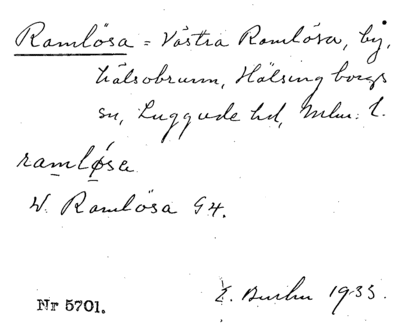 Ramlösa = Västra Ramlösa, by,
hälsobrunn, Hälsingborgs
sn, Luggude hd, Mlm. l.
ramlø̱sa
W. Ramlösa G4.
E. 1933.
Nr 5701.